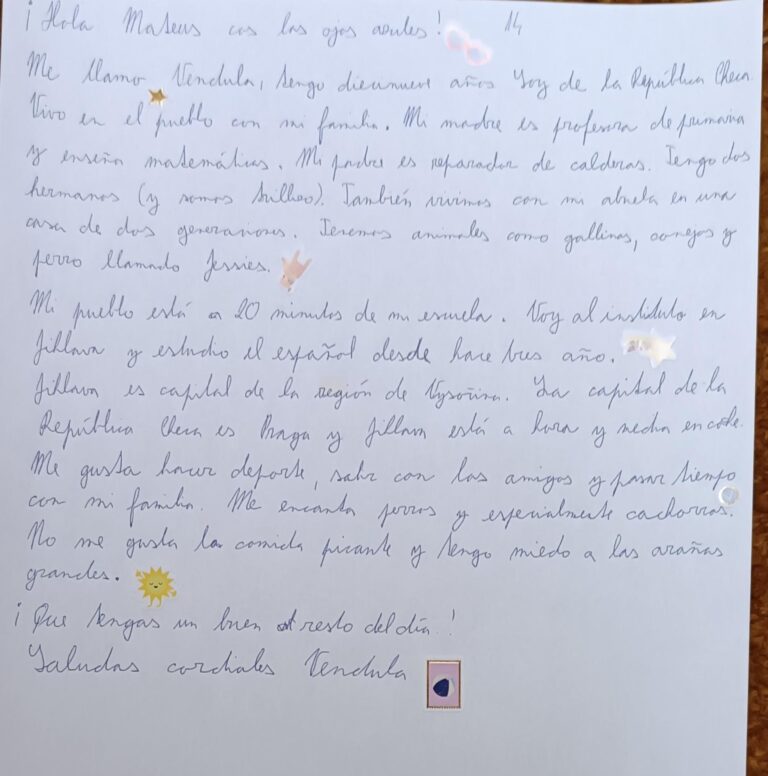 ¡Hola Mateus cos los ojos azules! 14
Me llamo Vendula, tengo diecinueve años Soy de la República Checa.
Vivo en el pueblo con mi familia. Mi madre es profesora de primaria
y enseña matemáticas. Mi padre es reparador de calderas. Tengo dos
hermanos (y somos trillizos). También vivimos con mi abuela en una
casa de dos generaciones. Tenemos animales como gallinas, conejos y
perro llamado Jessies.
Mi pueblo está a 20 minutos de mi escuela. Voy al instituto en
Jihlava y estudio el español desde hace tres año.
Jihlava es capital de la región de Vysočina. La capital de la
República Checa es Praga y Jihlava está a hora y media en coche.
Me gusta hacer deporte, salir con los amigos y pasar tiempo
con mi familia. Me encanta perros y especialmente cachorros.
No me gusta la comida picante y tengo miedo a las arañas
grandes.
¡Que tengas un buen resto del día!
Saludas cordiales Vendula